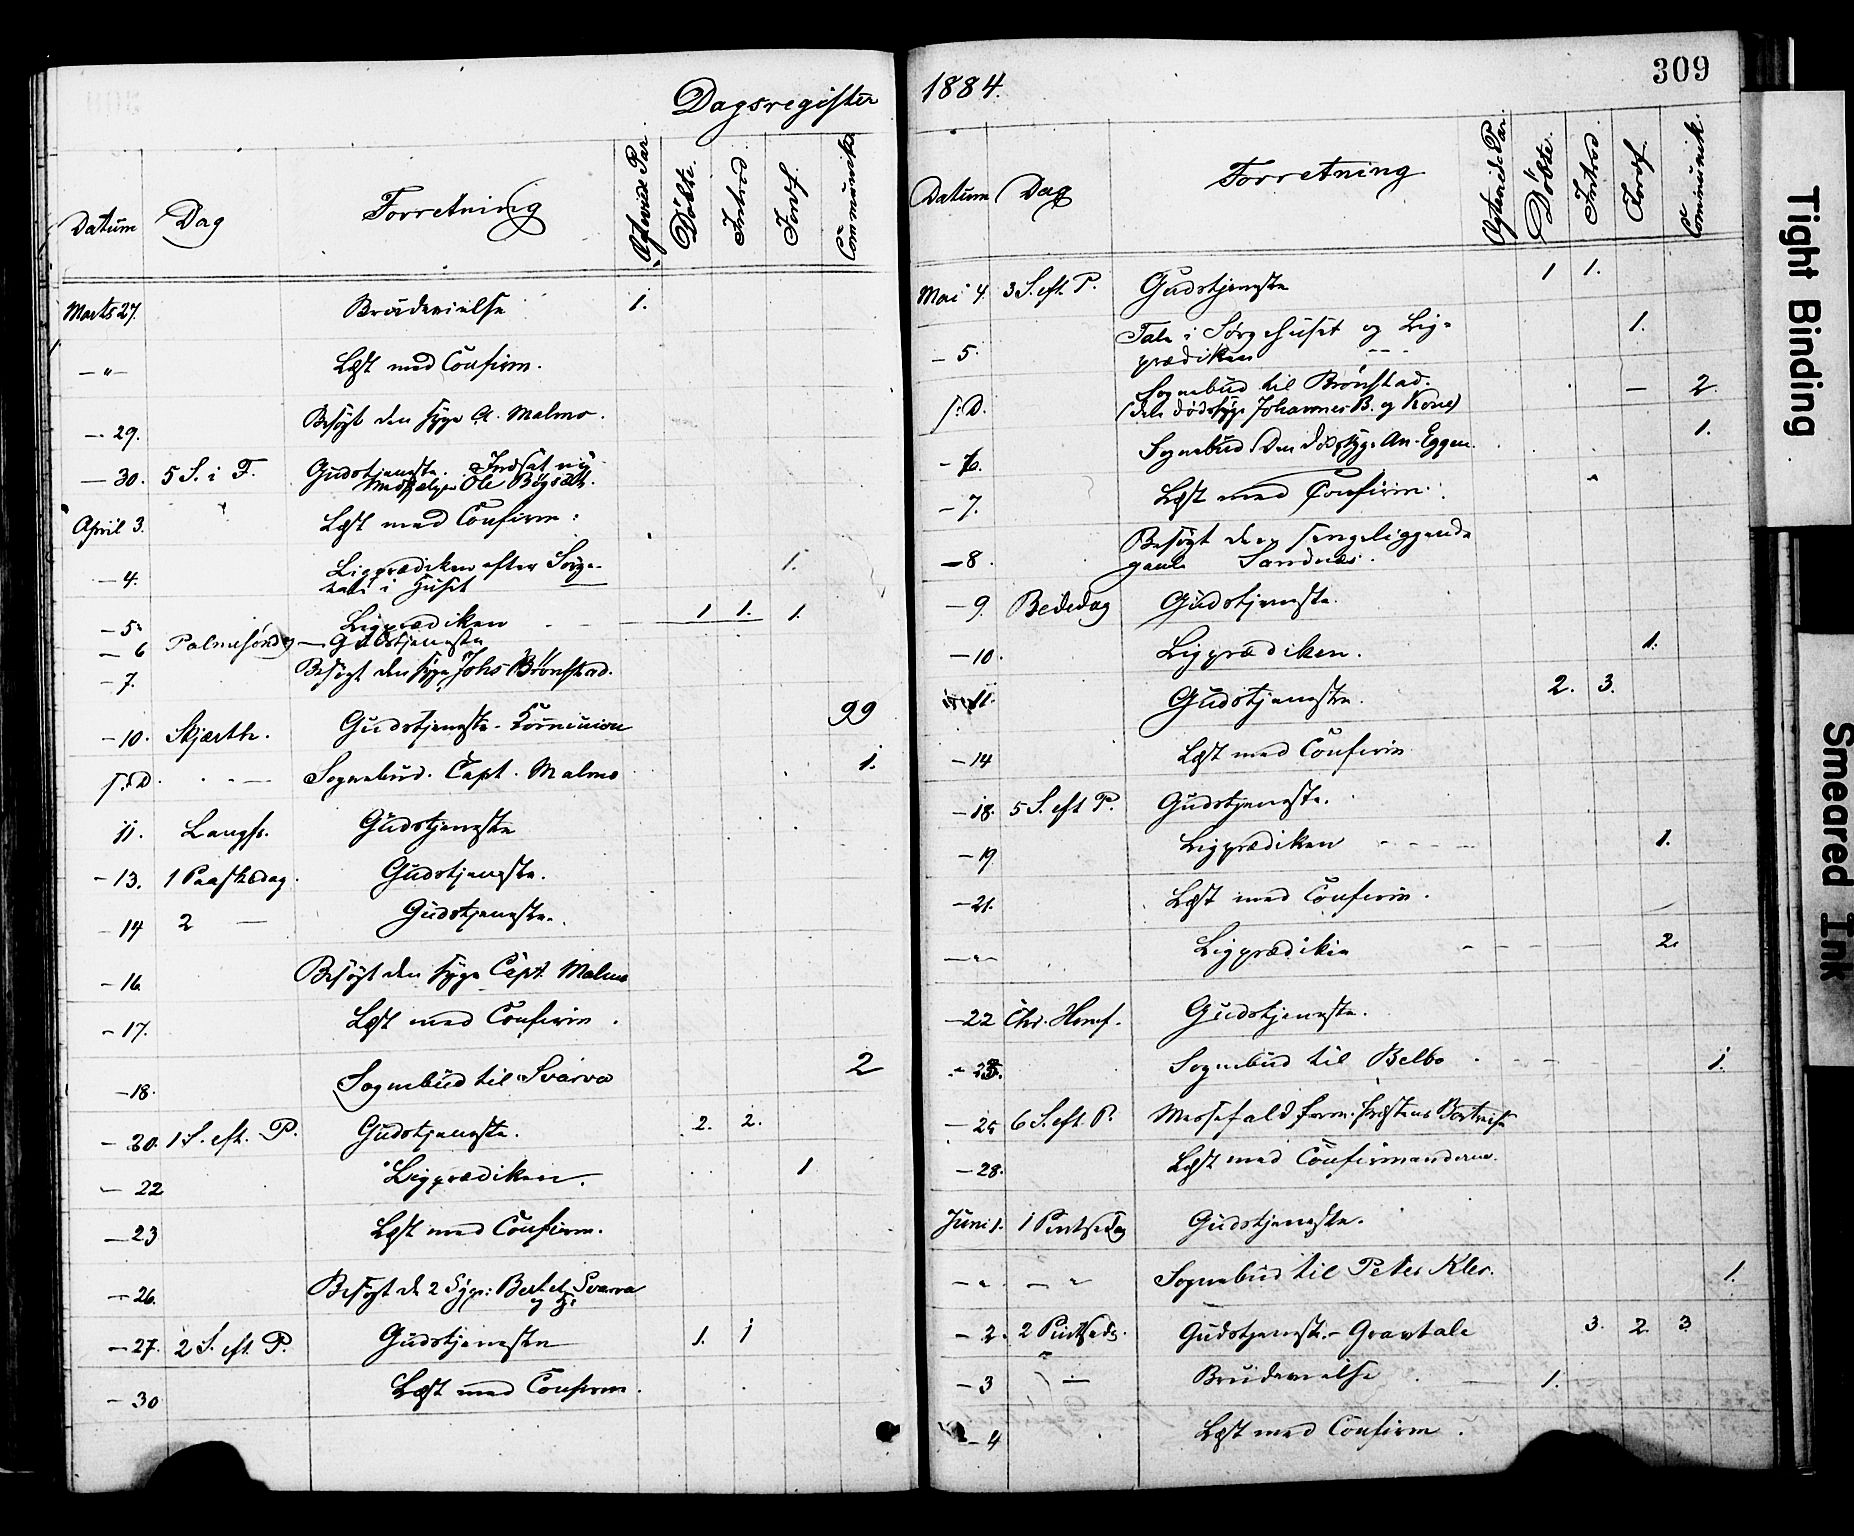 Dagsregister 1884.
309
Datum Dag Forretning Egteviede Par Döbte. Introd. Jordf. Communik.
Marts 27. Brudevielse 1.
— " — Læst med Confirm.
— 29. Besögt den syge A. Malmo.
— 30. 5 S. i F. Gudstjeneste. Indsat ny
Medhjelper Ole Bögsæth.
April 3. Læst med Confirm:
— 4. Ligprædiken efter Sörge- 1.
tale i Huset
— 5. Ligprædiken 1 1. 1.
— 6 Palmesöndag — Gudstjeneste
— 7. Besögt den syge Johs Brönstad.
— 10. Skjærth. Gudstjeneste - Communion 99
s. D. - — Sognebud. Capt. Malmo 1.
11. Langfr. Gudstjeneste
— 13. 1 Paaskedag. Gudstjeneste.
- 14 2 — Gudstjeneste.
- 16 Besögt den syge Capt. Malmo
- 17. Læst med Confirm.
- 18. Sognebud til Svarva 2
- 20. 1 S. eft. P. Gudstjeneste. 2. 2.
— 22 Ligprædiken. 1
— 23 Læst med Confirm.
— 26. Besögt de 2 Syge: Svarva
— 27. 2 S. eft. P. Gudstjeneste 1. 1
— 30 Læst med Confirm.
Datum Dag Forretning Egteviede Par. Döbte. Introd. Jordf. Communik.
Mai 4. 3 S. eft. P. Gudstjeneste 1 1.
— 5. Tale i Sörgehuset og Lig- 1.
prædiken
s. D. Sognebud til Brönstad. — 2.
(den dödssyge Johannes B. og Kone)
- 6. Sognebud Den dödssyge An. Eggen. 1.
- 7. Læst med Confirm.
- 8. Besögt den sengeliggende
gamle Sandnes.
— 9. Bededag Gudstjeneste.
— 10. Ligprædiken. 1.
11. Gudstjeneste. 2. 3.
— 14 Læst med Confirm
— 18. 5 S. eft P. Gudstjeneste.
— 19 Ligprædiken 1.
— 21. Læst med Confirm.
— " — Ligprædiken 2.
— 22 Chr. Himf. Gudstjeneste.
- 23. Sognebud til Belbo 1.
— 25 6 S. eft. P. Messefald form. Præstens Bortreise
— 28. Læst med Confirmanderne.
Juni 1. 1 Pintsedag Gudstjeneste.
— " — " Sognebud til Peter Kles. 1.
— 2. 2 Pintseds. Gudstjeneste. - Gravtale 3. 2. 3
— 3 — Brudevielse 1.
- 4 Læst med Confirm.
Tight Binding
Smeared Ink